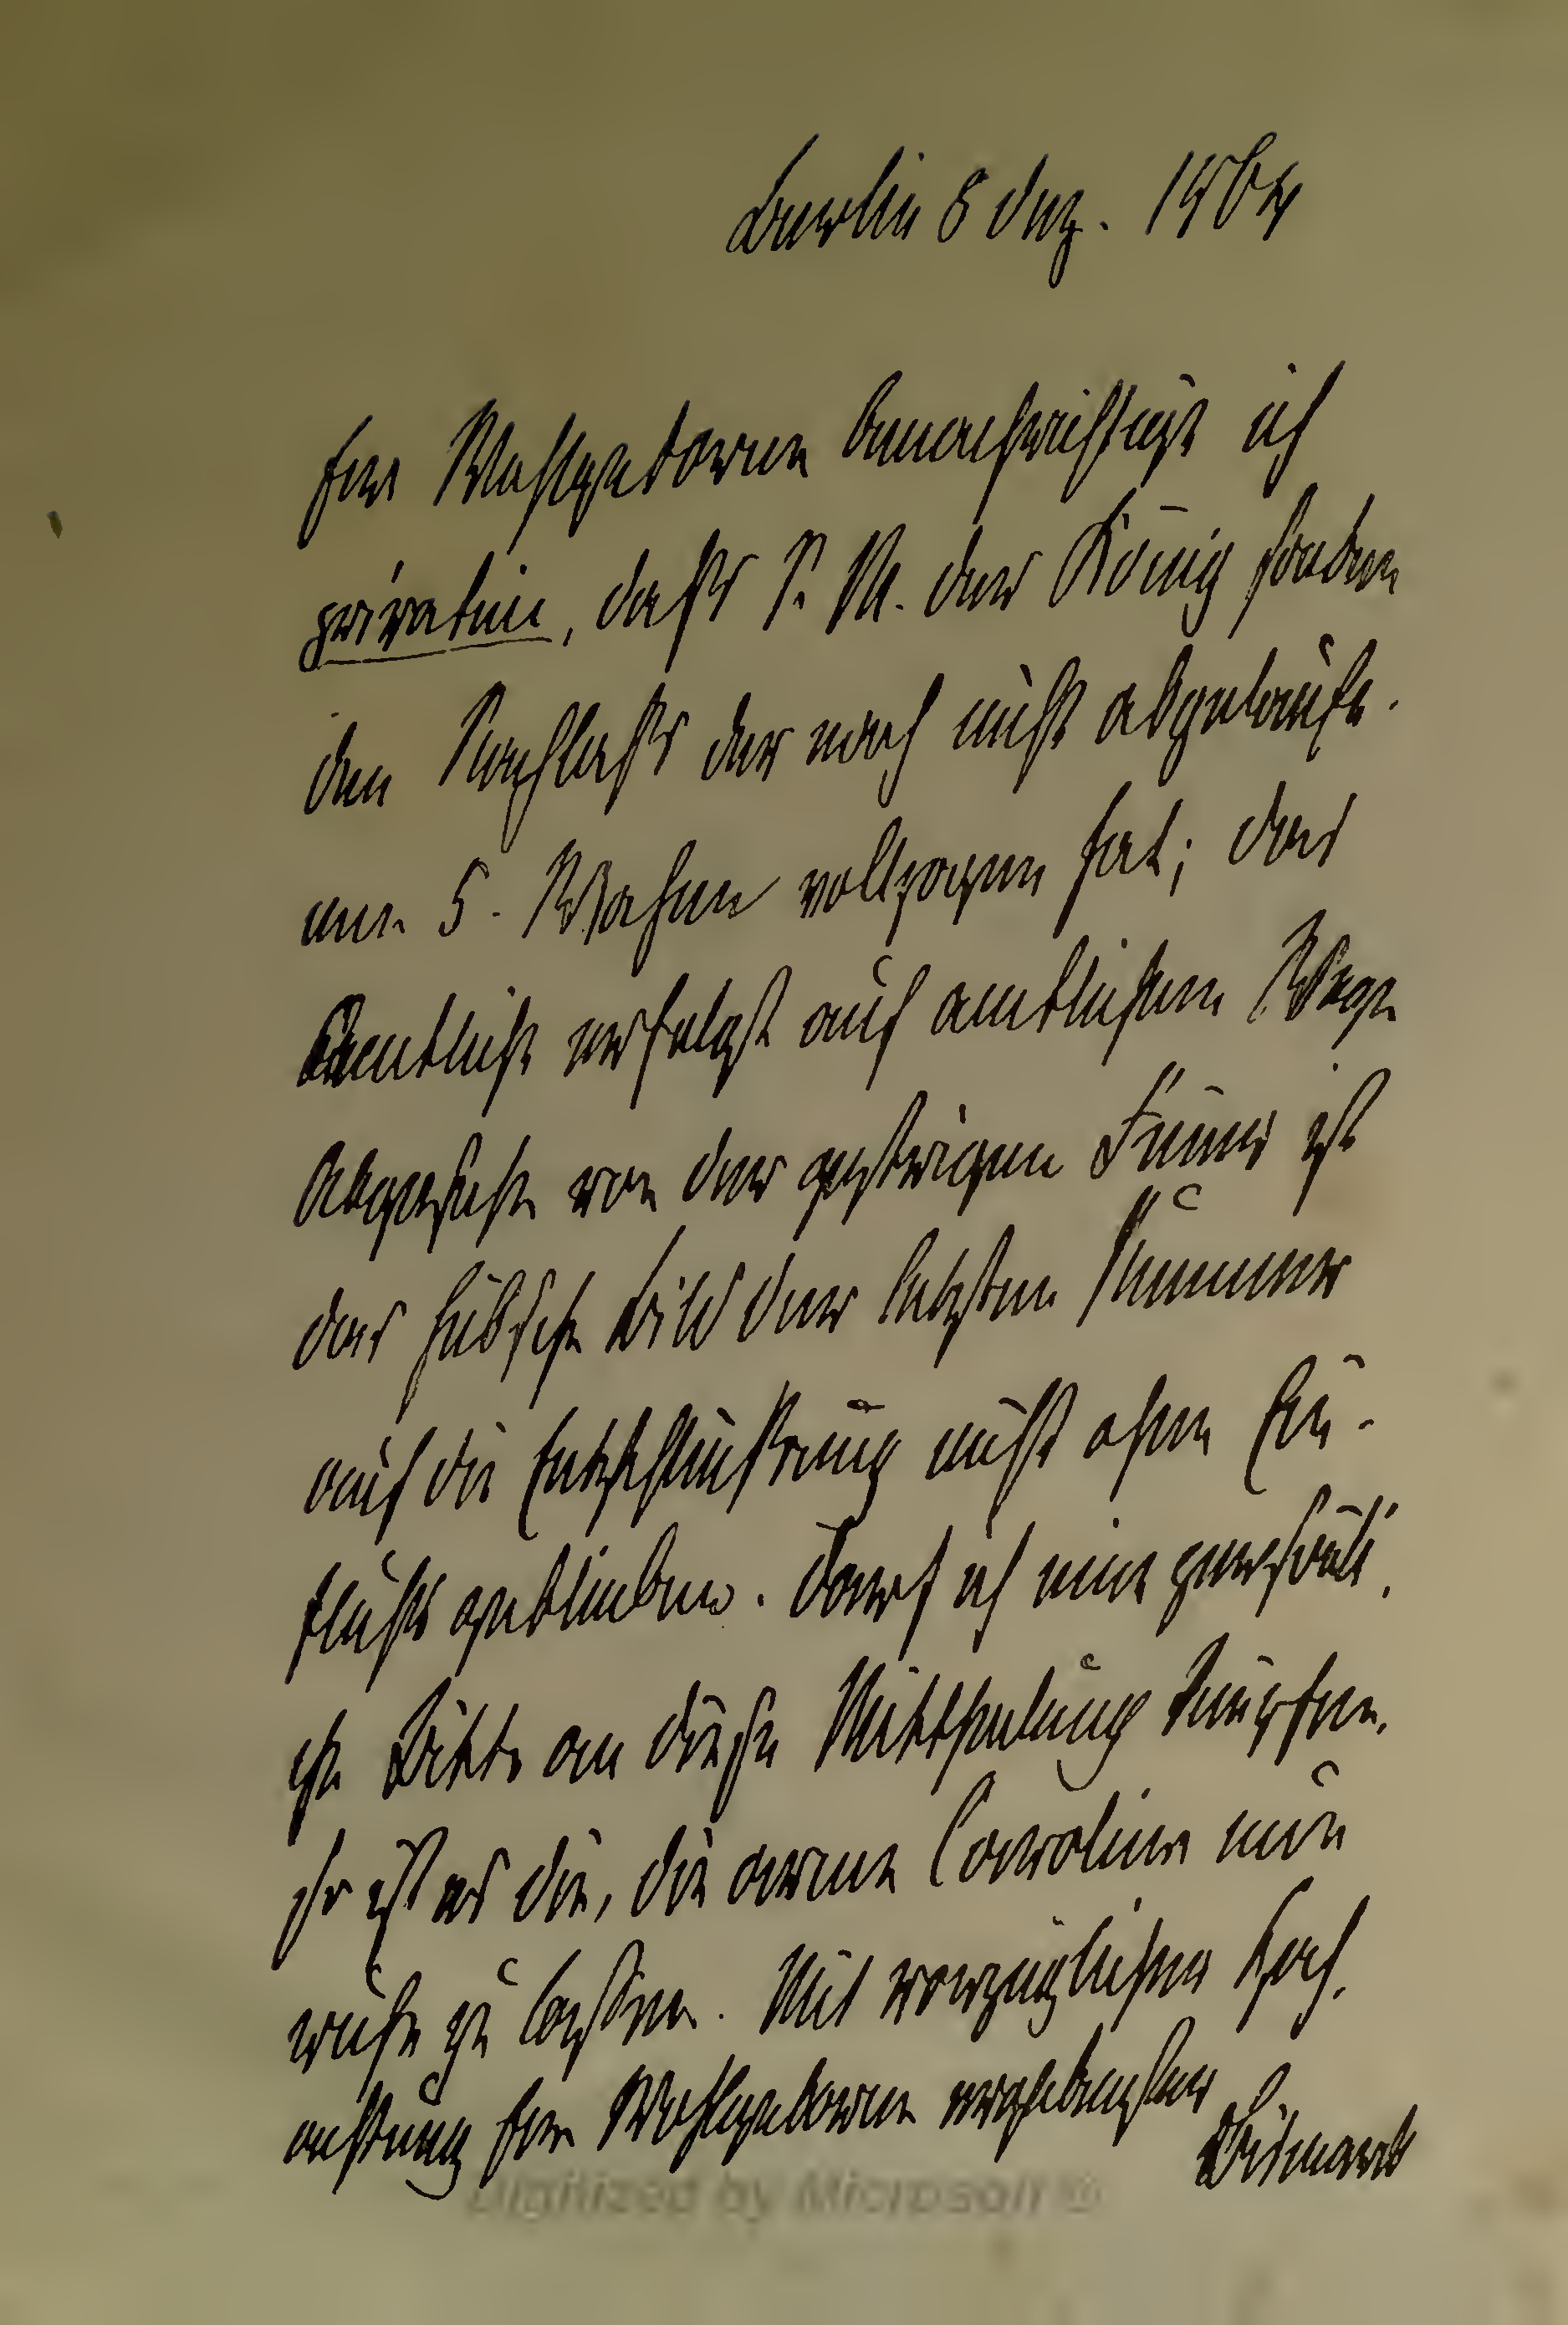 Berlin 8 Dez. 1864
Eure Wohlgeboren benachrichtige ich
privatim, daß S. M. der König soeben
den Nachlaß der noch nicht abgelaufe-
nen 5 Wochen vollzogen hat; das
Amtliche erfolgt auf amtlichem Wege
Abgesehen von der gestrigen Feuer ist
das hübsche Bild der letzten Nummer
auf die Entschließung nicht ohne Ein-
fluß geblieben. Darf ich eine persönli-
che Bitte an diese Mittheilung knüpfen,
so ist es die, die arme Caroline nun
ruhn zu lassen. Mit vorzüglicher Hoch-
achtung Eurer Wohlgeboren ergebenster
vBismarck
Digitized by Microsoft ®